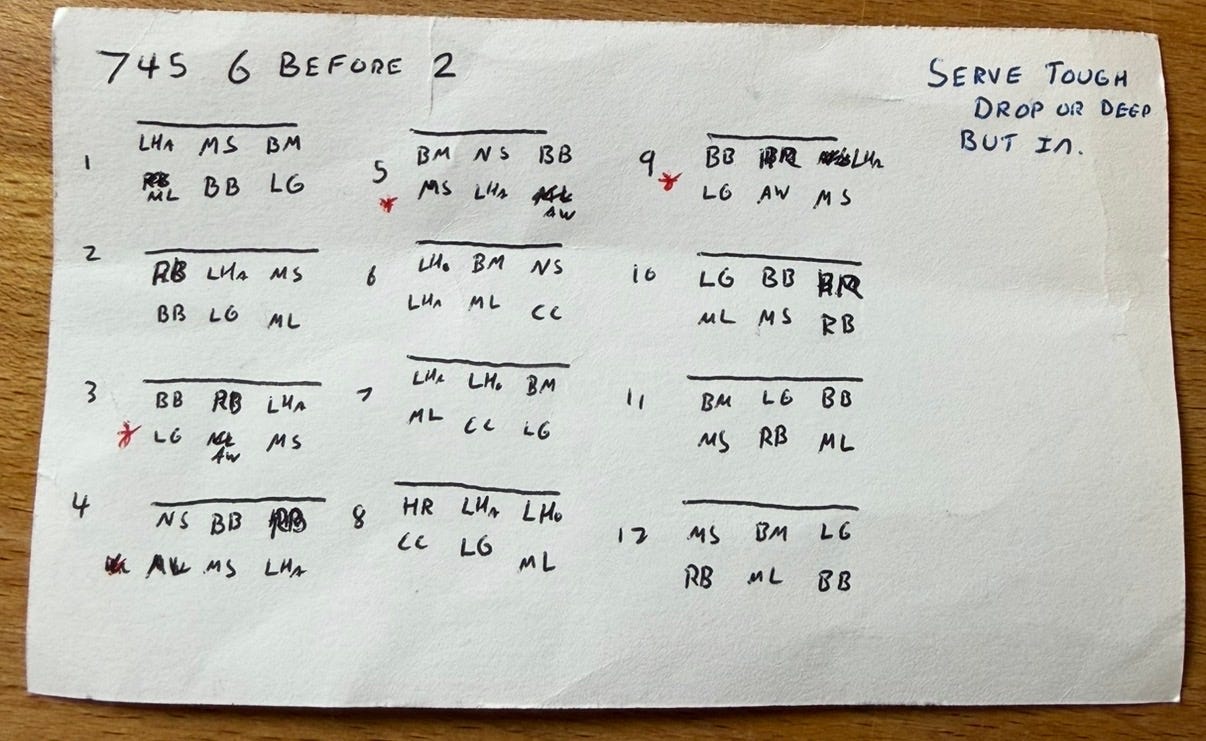 745 6 BEFORE 2
SERVE TOUGH
DROP OR DEEP
BUT IN.
1
LHA MS BM
ML BB LG
2
RB LHA MS
BB LG ML
3
BB RB LHA
* LG AW MS
4
NS BB RB
MS LHA
5
BM NS BB
* MS LHA AW
6
LHO BM NS
LHA ML CC
7
LHA LHO BM
ML CC LG
8
HR LHA LHO
CC LG ML
9
BB LHA
* LG AW MS
10
LG BB
ML MS RB
11
BM LG BB
MS RB ML
12
MS BM LG
RB ML BB